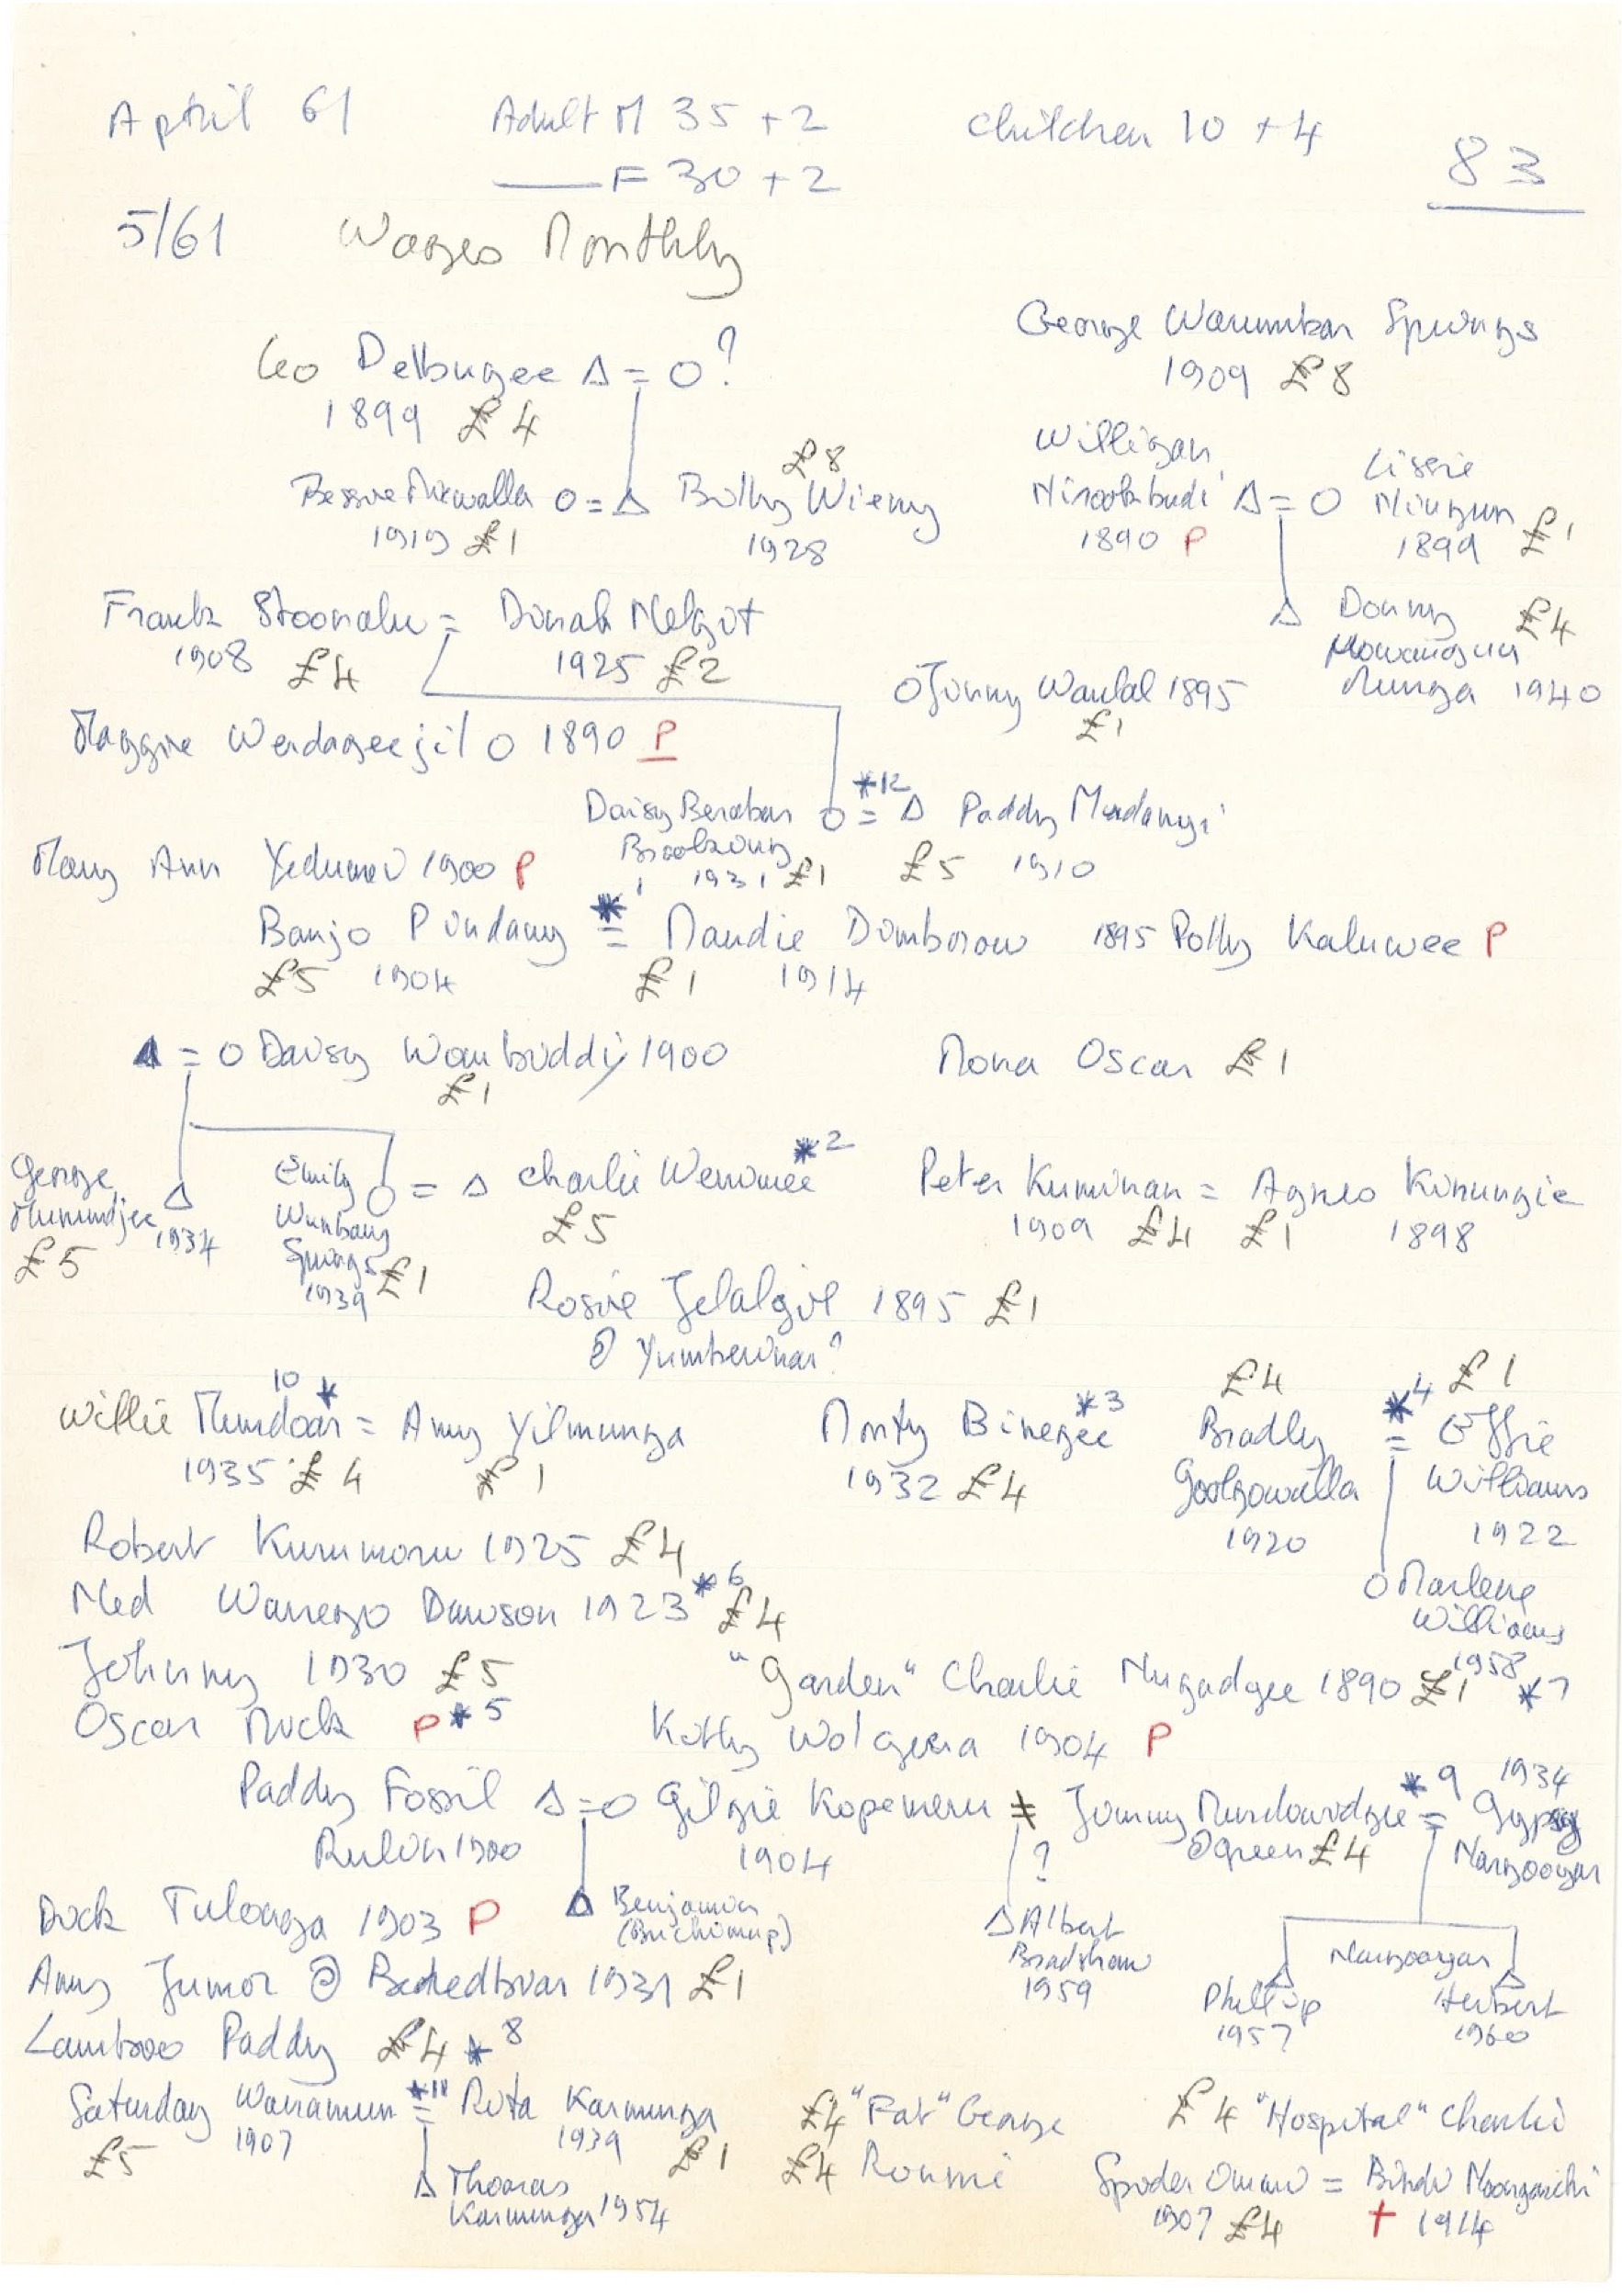 April 61 Adult M 35 + 2 Children 10 + 4
F 30 + 2 83
5/61 Wages Monthly
George Warumban Springs
1909 £8
Leo Delbugee Δ = O ?
1899 £4
Bessie O = Δ Billy Wieny £8
1919 £1 1928
Willigan Δ = O Lissie
1890 P 1899 £1
Δ Donny £4
Munga 1940
Frank = Dinah Melgit
1908 £4 1925 £2
O Jinny Wanlal 1895
£1
Maggie Werdageejil O 1890 P
Daisy O = Δ Paddy Mudangi *12
1931 £1 £5 1910
Mary Ann 1900 P
Banjo Pundany = Maudie Domborow *1 1895 Polly Kaluwee P
£5 1904 £1 1914
Δ = O Daisy Wambiddi 1900
£1
Mona Oscar £1
George Δ 1934
£5
Emily O = Δ Charlie Wenimee *2
£5
Springs
1939 £1
Peter Kuminan = Agnes Kinungie
1909 £4 £1 1898
Rosie Jelalgil 1895 £1
@ Yumberinar?
Willie Mundoai = Amy Yilmunga 10 *
1935 £4 £1
Monty Binegee *3
1932 £4
£4 £1
Bradly = Effie *4
Goolgowalla Williams
1920 1922
O Marlene
Williams
1958
Robert Kurumoru 1925 £4
Ned Wanergo Dawson 1923 *6 £4
Johnny 1930 £5
"Garden" Charlie Nugadgee 1890 £1 *7
Oscar Muck P *5
Kitty Wolgera 1904 P
Paddy Fossil Δ = O Gilgie Kopemeru ≠ Jimmy = Gypsy *9 1934
Rulin 1900 1904 @ Green £4 Nangoogar
?
Dick Tulonga 1903 P
Δ Benjamin
Δ Albert
Bradshaw
1959
Nangoogar
Δ Phillip Δ Herbert
1957 1960
Amy Jumor @ 1931 £1
Lamboo Paddy £4 *8
Saturday Wanamun = Rita Karmunga *11
£5 1907 1939 £1
Δ Thomas
Karmunga 1954
£4 "Fat" George
£4 Ronnie
£4 "Hospital" Charlie
Spider Omani = Bindi
1907 £4 † 1914